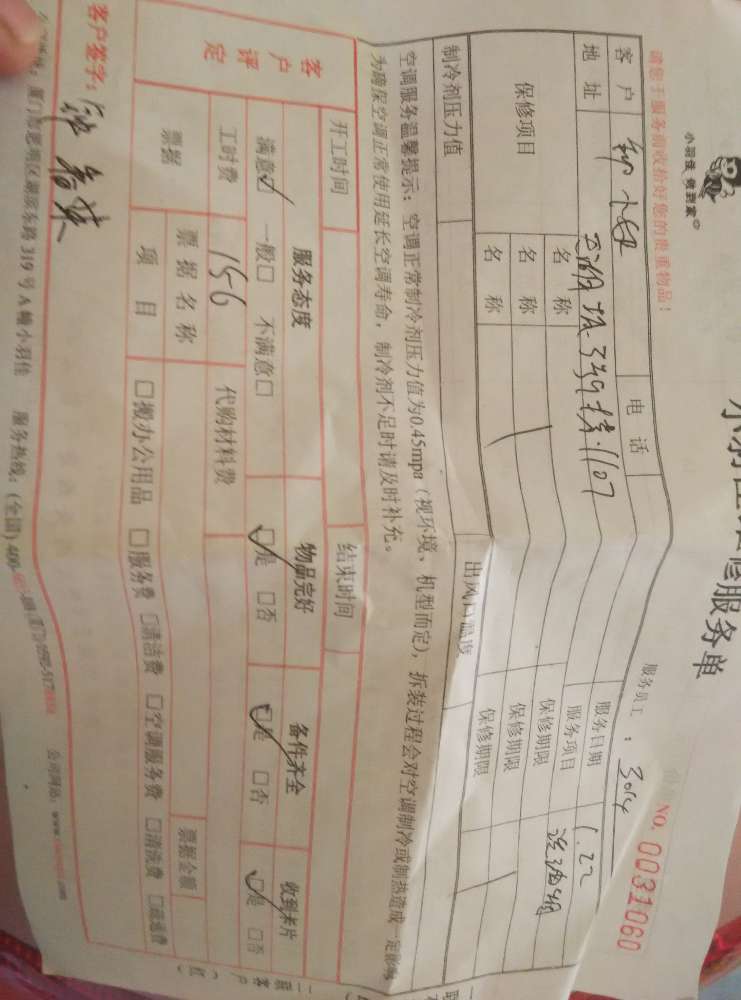 小羽佳 做到家
修服务单
NO. 0031060
请您于服务前收拾好您的贵重物品!
服务员工: 3014
客户 电话 服务日期 1.22
地址 服务项目
保修项目 名称 保修期限
名称 保修期限
名称 保修期限
制冷剂压力值 出风口温度
空调服务温馨提示:空调正常制冷剂压力值为0.45mpa(视环境、机型而定),拆装过程会对空调制冷或制热造成一定影响
为确保空调正常使用延长空调寿命,制冷剂不足时请及时补充。
开工时间 结束时间
客户评定 服务态度 物品完好 备件齐全 收到卡片
满意☑ 一般□ 不满意□ ☑是 □否 ☑是 □否 ☑是 □否
工时费 156 代购材料费
票据 票据名称 票据金额
项目 □搬办公用品 □服务费 □清洁费 □空调服务费 □清洗费 □疏通费
客户签字:
厦门市思明区湖滨东路 319 号 A 幢小羽佳 服务热线:(全国) 400- 公司网站:www. .com